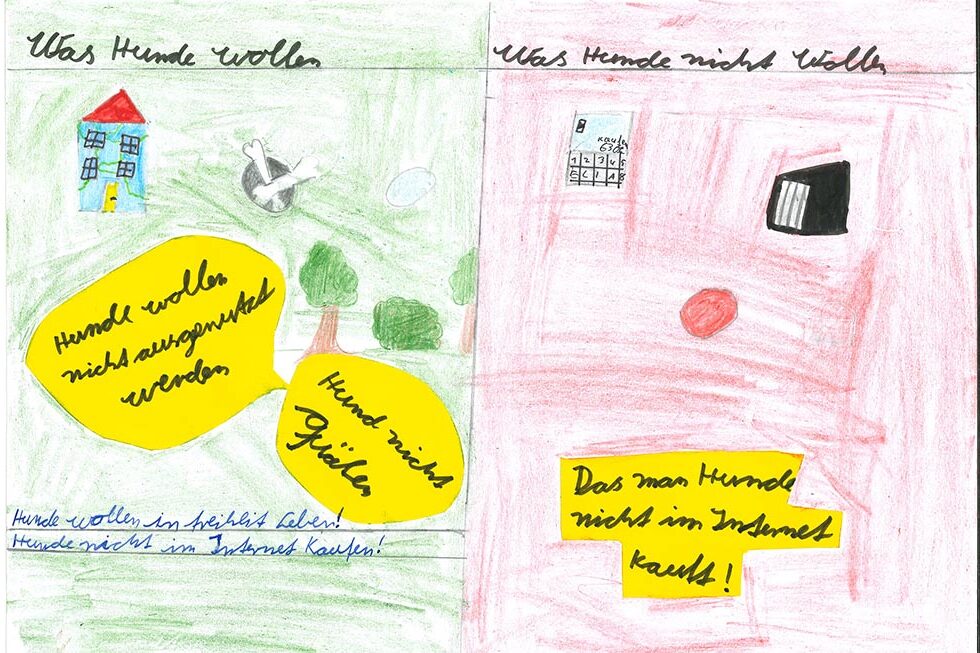 Was Hunde wollen
Hunde wollen
nicht ausgenutzt
werden
Hund nicht
Quälen
Hunde wollen in freiheit Leben!
Hunde nicht im Internet Kaufen!
Was Hunde nicht Wollen
kaufen
630€
1 2 3 4 5
E L I A
Das man Hunde
nicht im Internet
kauft!